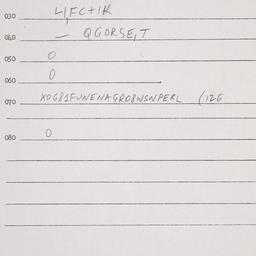 030 L1FC+1K
040 — QGORSE1T
050 0
060 0
070 X0G81FUNENAGRO8WSNPERL (12G
080 0